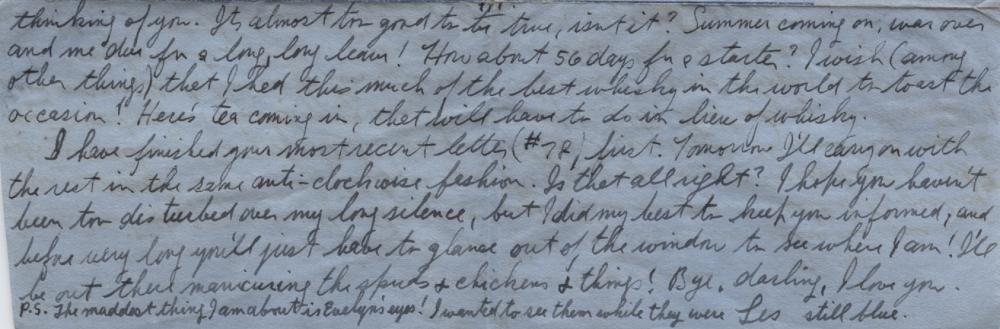 thinking of you. Its almost too good to be true, isn't it? Summer coming on, war over
and me due for a long, long leave! How about 56 days for a starter? I wish (among
other things) that I had this much of the best whisky in the world to toast the
occasion! Here's tea coming in, that will have to do in lieu of whisky.
I have finished your most recent letter (#78) first. Tomorrow I'll carry on with
the rest in the same anti-clockwise fashion. Is that all right? I hope you haven't
been too disturbed over my long silence, but I did my best to keep you informed, and
before very long you'll just have to glance out of the window to see where I am! I'll
be out there manicuring the spuds & chickens & things! Bye, darling, I love you.
P.S. The maddest thing I am about is Evelyn's eyes! I wanted to see them while they were still blue.
Les